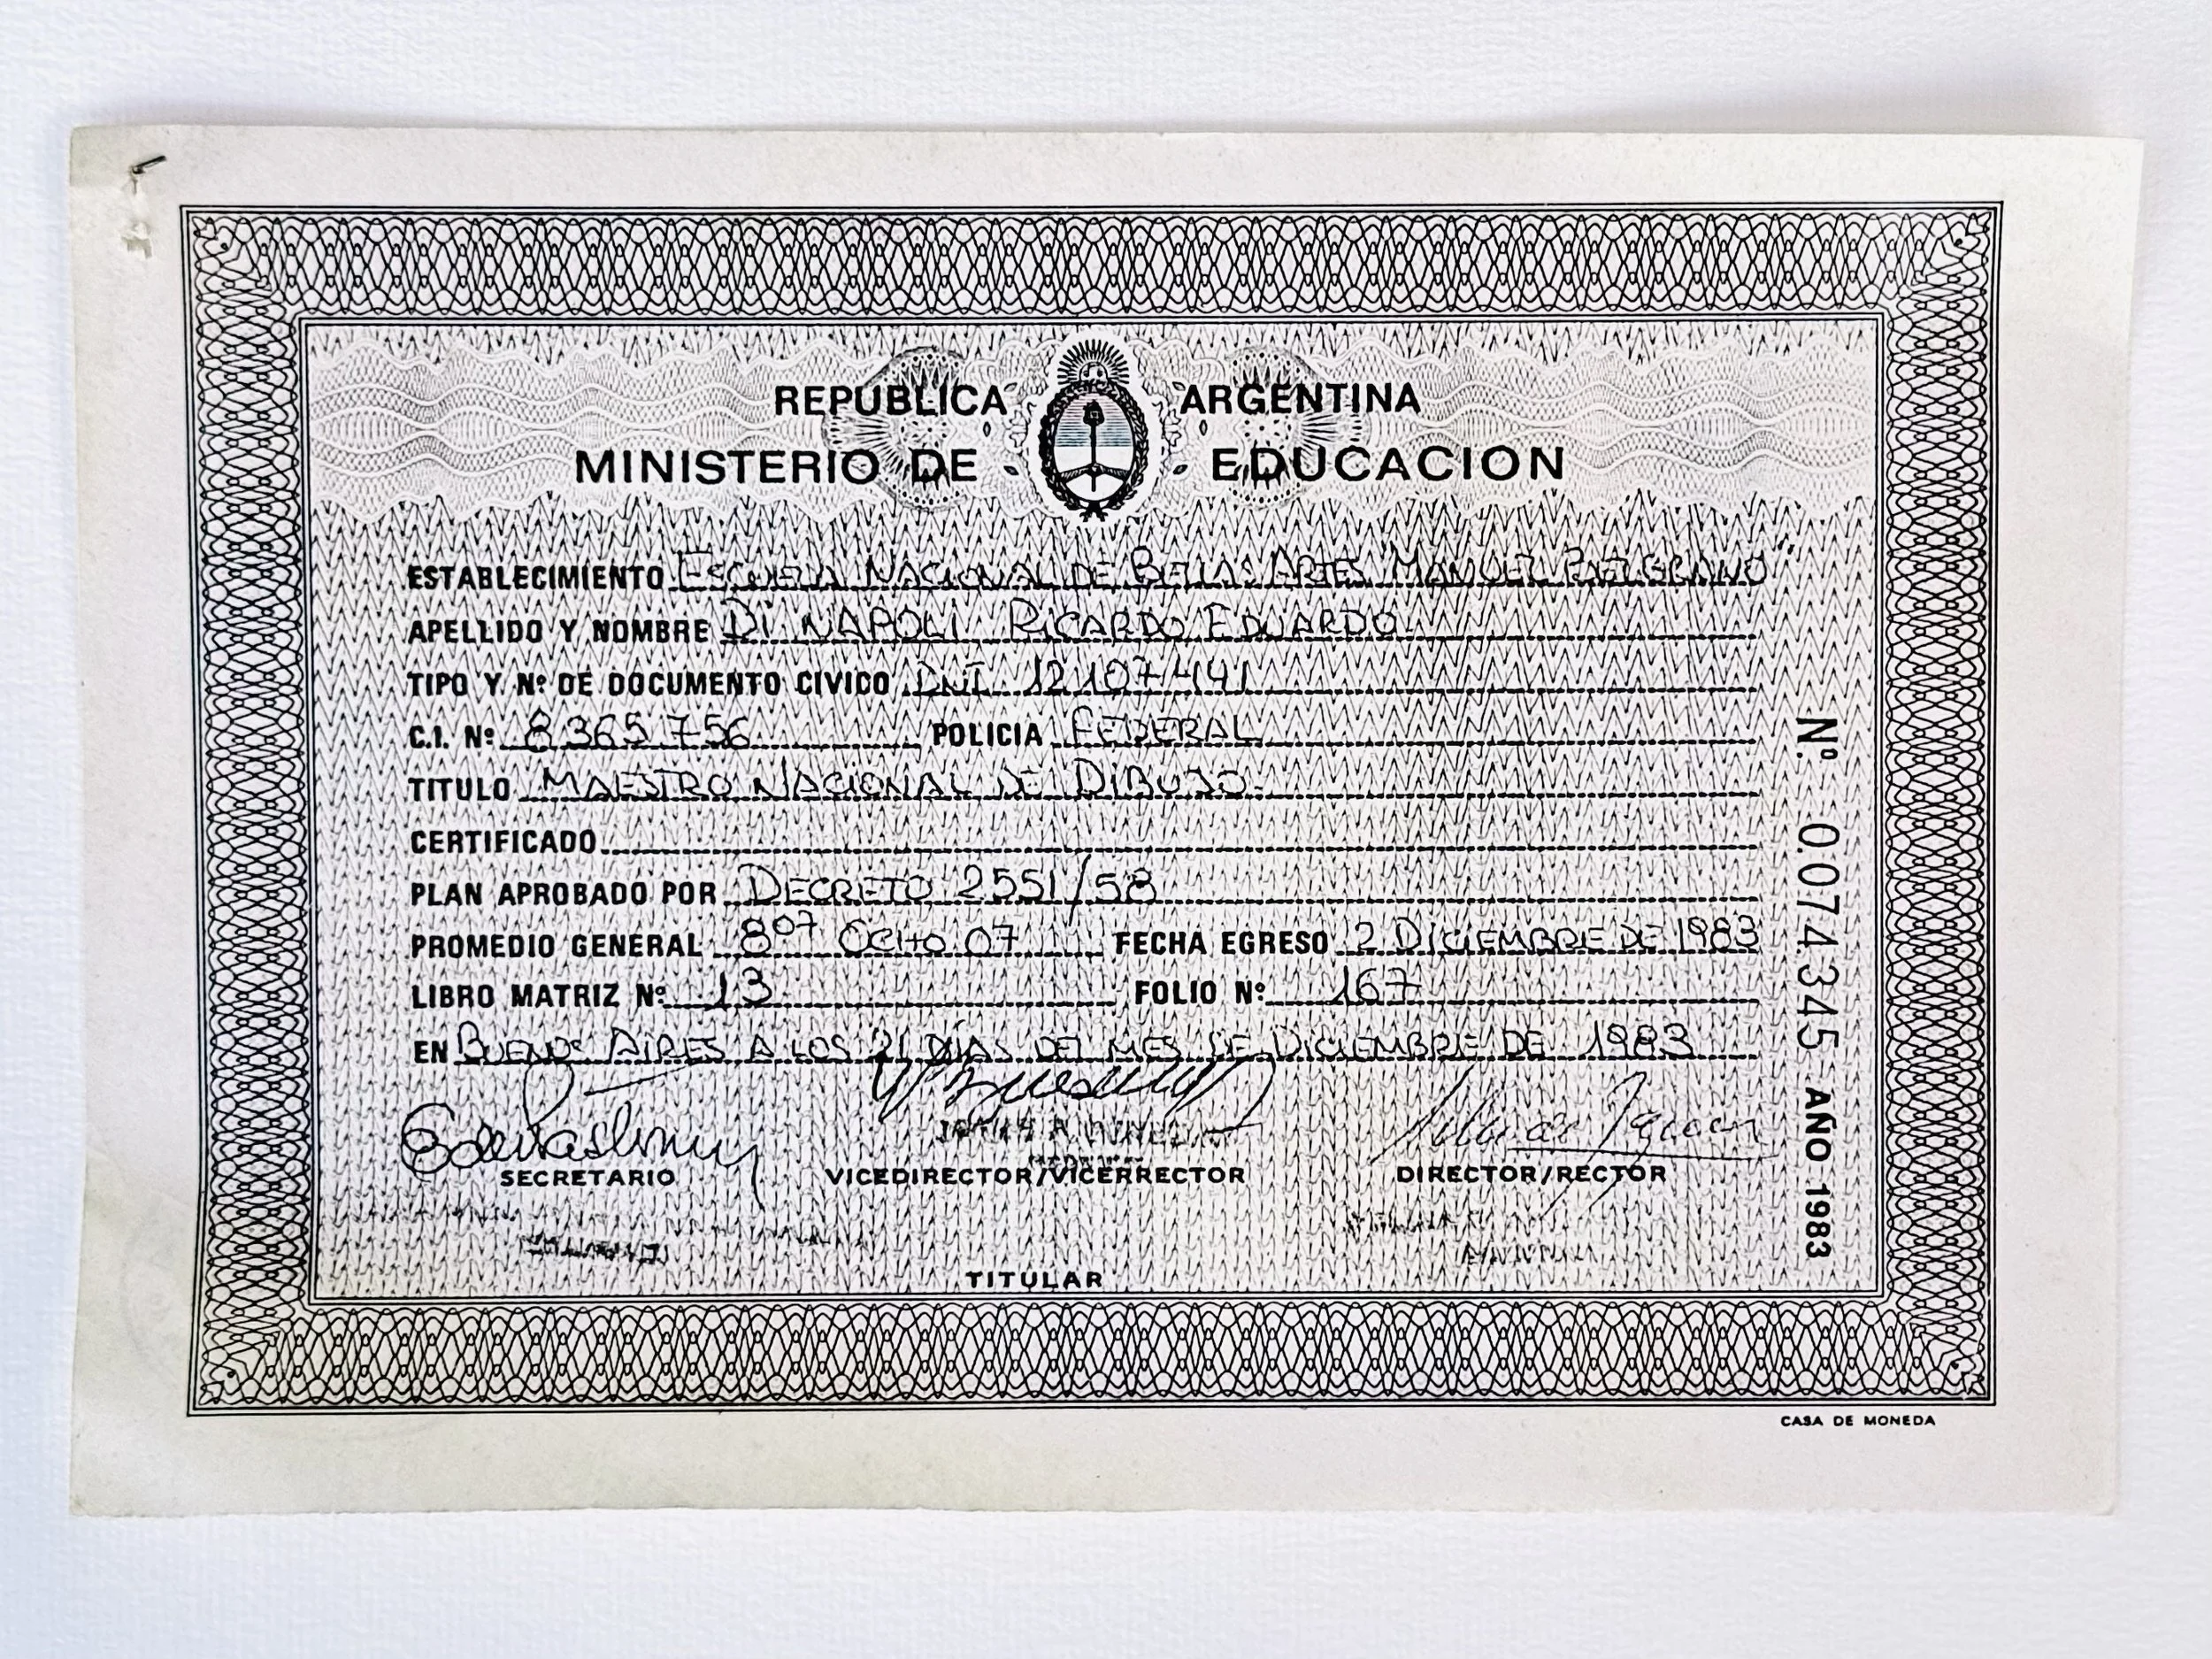 REPUBLICA ARGENTINA
MINISTERIO DE EDUCACION
ESTABLECIMIENTO ESCUELA NACIONAL DE BELLAS ARTES "MANUEL BELGRANO"
APELLIDO Y NOMBRE DI NAPOLI RICARDO EDUARDO
TIPO Y Nº DE DOCUMENTO CIVICO DNI 12.107.441
C.I. Nº 8365756 POLICIA FEDERAL
TITULO MAESTRO NACIONAL DE DIBUJO
CERTIFICADO
PLAN APROBADO POR DECRETO 2551/58
PROMEDIO GENERAL 8 07 OCHO 07 FECHA EGRESO 2 DICIEMBRE DE 1983
LIBRO MATRIZ Nº 13 FOLIO Nº 167
EN BUENOS AIRES A LOS 21 DÍAS DEL MES DE DICIEMBRE DE 1983
SECRETARIO VICEDIRECTOR/VICERRECTOR DIRECTOR/RECTOR
TITULAR
Nº 0.074.345 AÑO 1983
CASA DE MONEDA